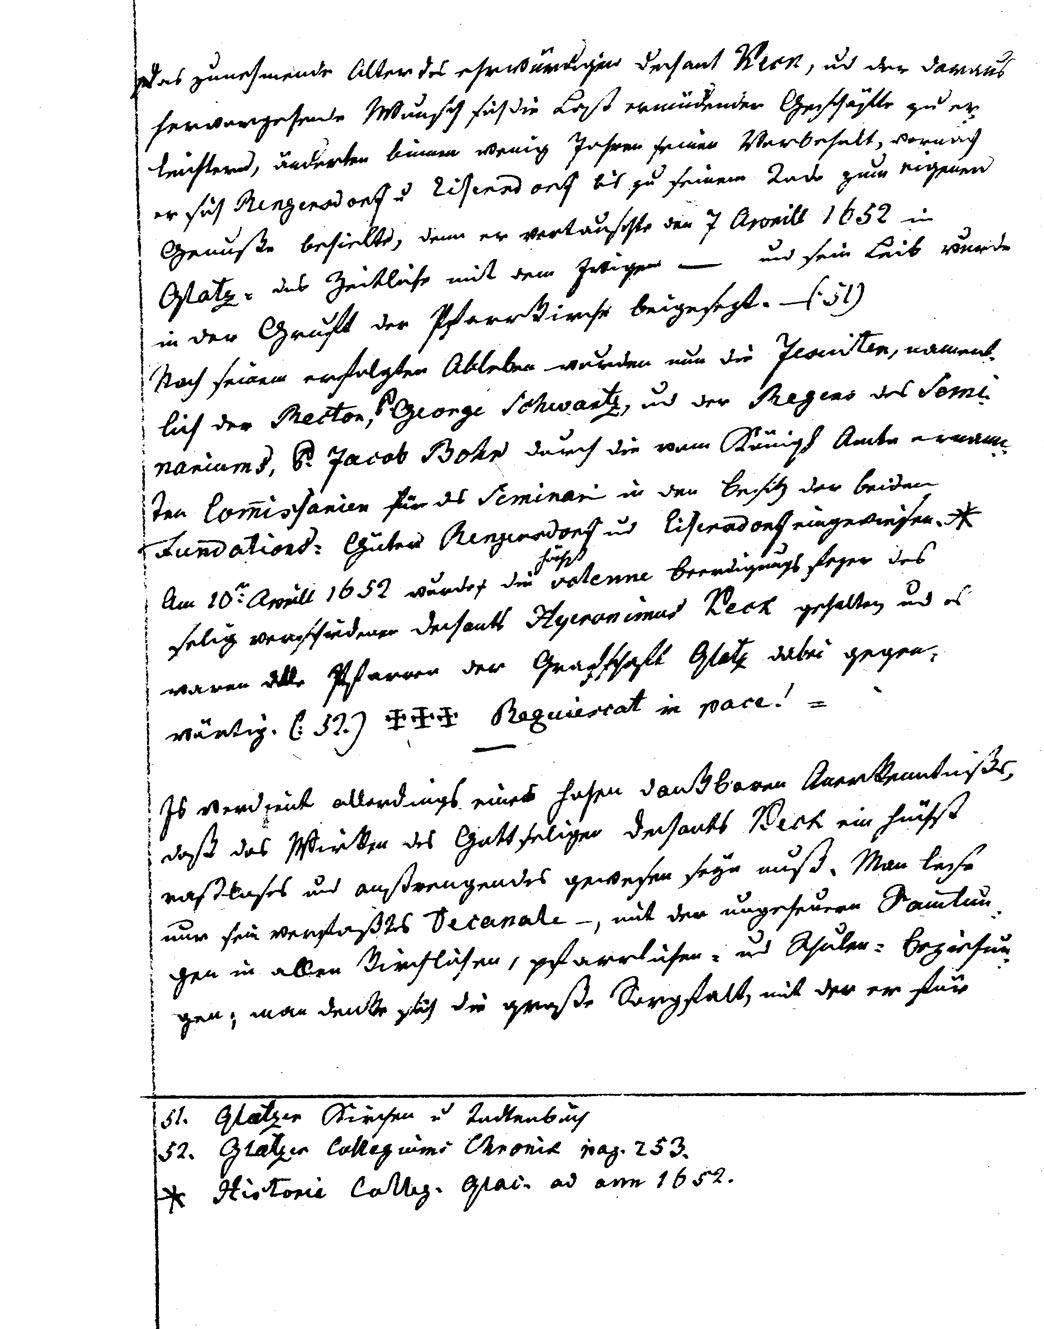 Das zunehmende Alter des ehrwürdigen Dechant Keck, ud der daraus
hervorgehende Wunsch sich die Last ermüdender Geschäfte zu er-
leichtern, änderten binnen wenig Jahren seinen Vorbehalt, vornach
er sich Rengersdorf u Eisersdorf bis zu seinem Tode zum eigenen
Genuße behielte, denn er vertauschte den 7 Aprill 1652 in
Glatz = das Zeitliche mit dem Ewigen — und sein Leib wurde
in der Gruft der Pfarrkirche beigesezt. — (: 51)
Nach seinem erfolgten Ableben wurden nun die Jesuiten, nament-
lich der Rector, P George Schwartz, ud der Regens des Semi-
nariums, P: Jacob Bohn durch die vom Königl Amte ernann-
ten Commissarien für das Seminari in den Besitz der beiden
Fundations = Güter Rengersdorf ud Eisersdorf eingewiesen. *
Am 10ten Aprill 1652 wurde die höchst solenne Beerdigungsfeyer des
selig verschiedenen Dechants Hyeronimus Keck gehalten ud es
waren alle Pfarrer der Grafschaft Glatz dabei gegen-
wärtig. (: 52.) ✠✠✠ Requiescat in pace! =
Es verdient allerdings eines hohen dankbaren Anerkenntnißes,
daß das Wirken des Gottseligen Dechants Keck ein höchst
rastloses und anstrengendes gewesen seyn muß. Man lese
nur sein verfaßtes Decanale —, mit den ungeheuern Samlun-
gen in allen Kirchlichen, pfarrlichen = ud Schulen = Beziehun-
gen; man denke sich die große Sorgfalt, mit der er für
51. Glatzer Kirchen u Todtenbuch
52. Glatzer Collegiums Chronik pag. 253.
* Historie Colleg. Glac. ad ann 1652.